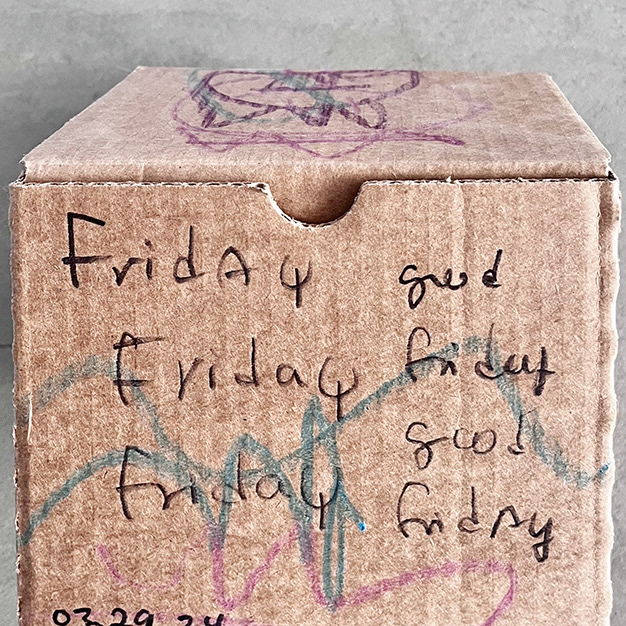 FridAy
good
Friday
friday
good
Friday
fridAy
03.29.24